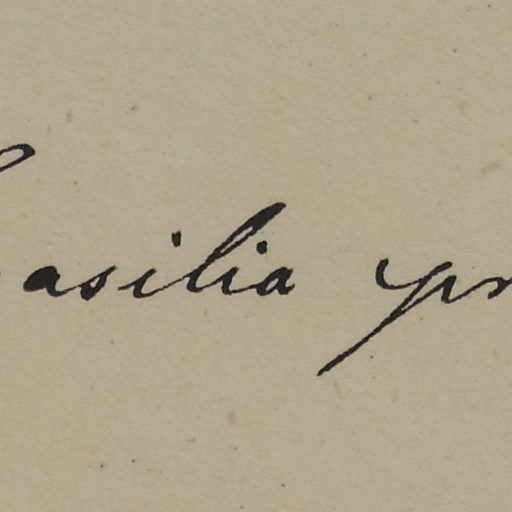 asilia pr